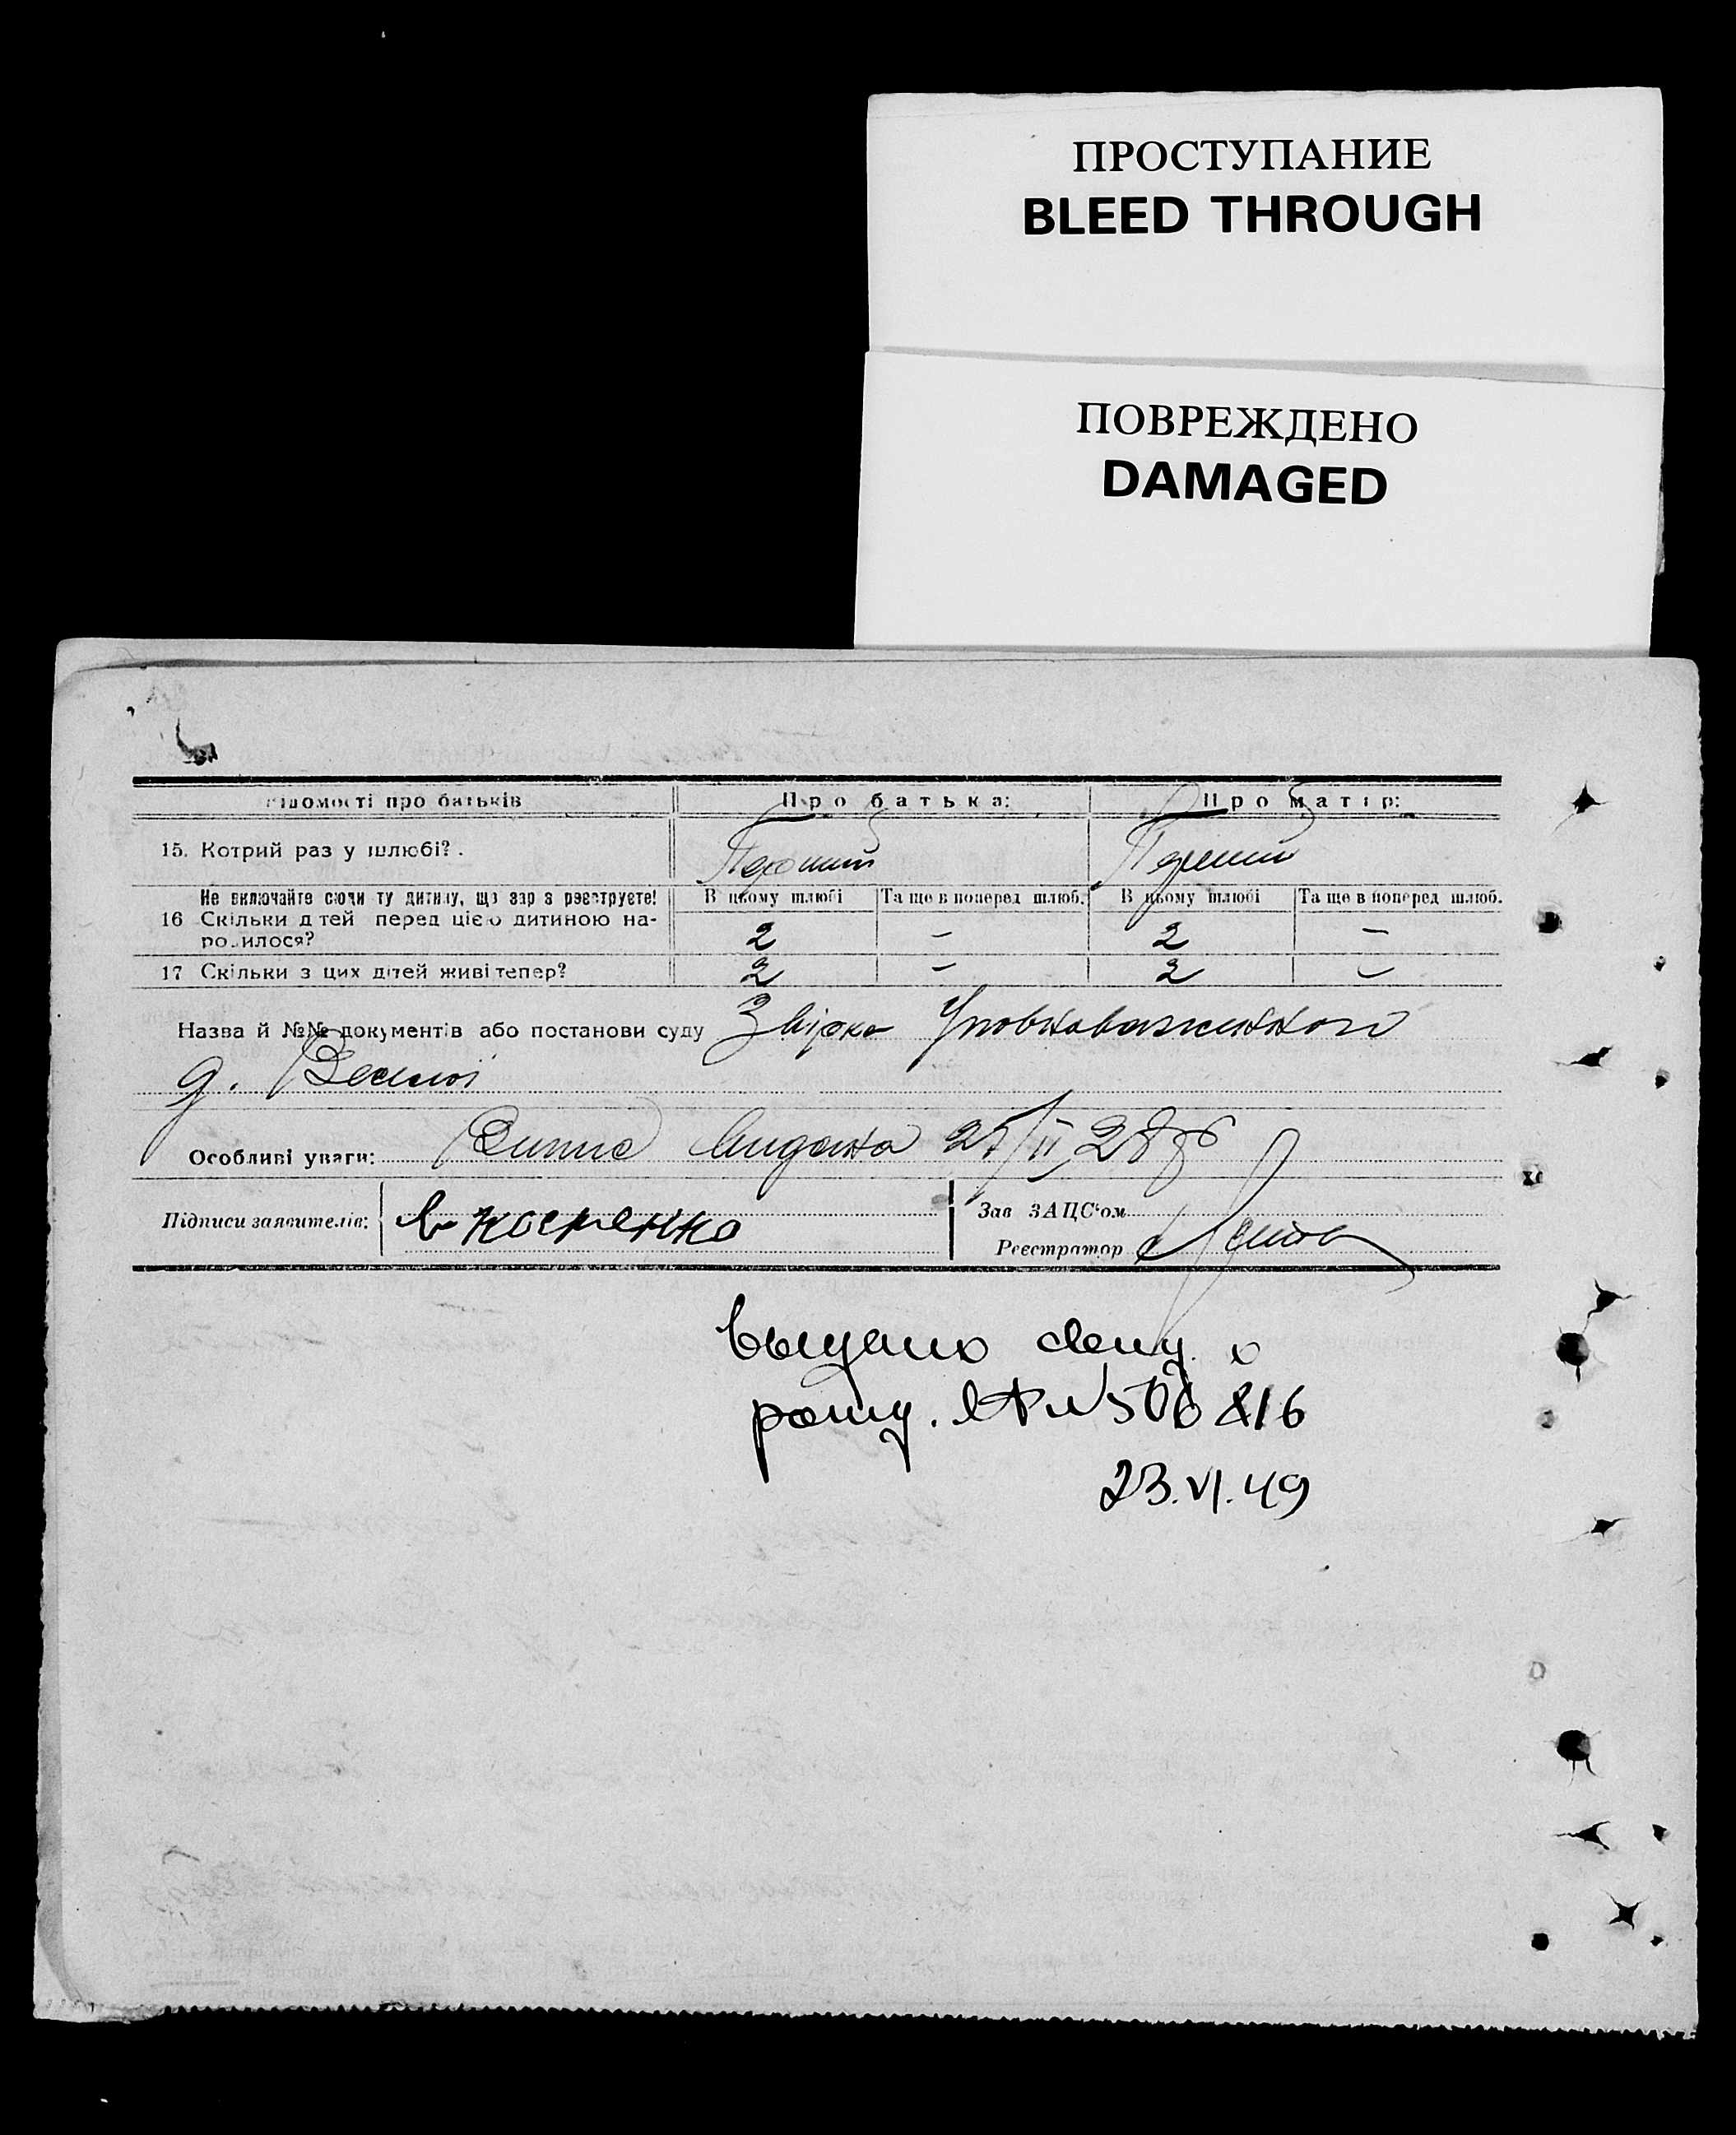 ПРОСТУПАНИЕ
BLEED THROUGH
ПОВРЕЖДЕНО
DAMAGED
ідомості про батьків Про батька: Про матір:
15. Котрий раз у шлюбі? . Перший Перший
Не включайте сюди ту дитину, що зараз реєструєте! В цьому шлюбі Та ще в поперед шлюб. В цьому шлюбі Та ще в поперед шлюб.
16 Скільки дітей перед цією дитиною на-
родилося? 2 – 2 –
17 Скільки з цих дітей живі тепер? 2 – 2 –
Назва й №№ документів або постанови суду Звірка Уповноваженного
д.
Особливі уваги: Випис видана
Підписи заявителів: Костенко Зав ЗАЦС'ом
Реєстратор
выдано свид. о
рожд. № 506816
23.VI.49